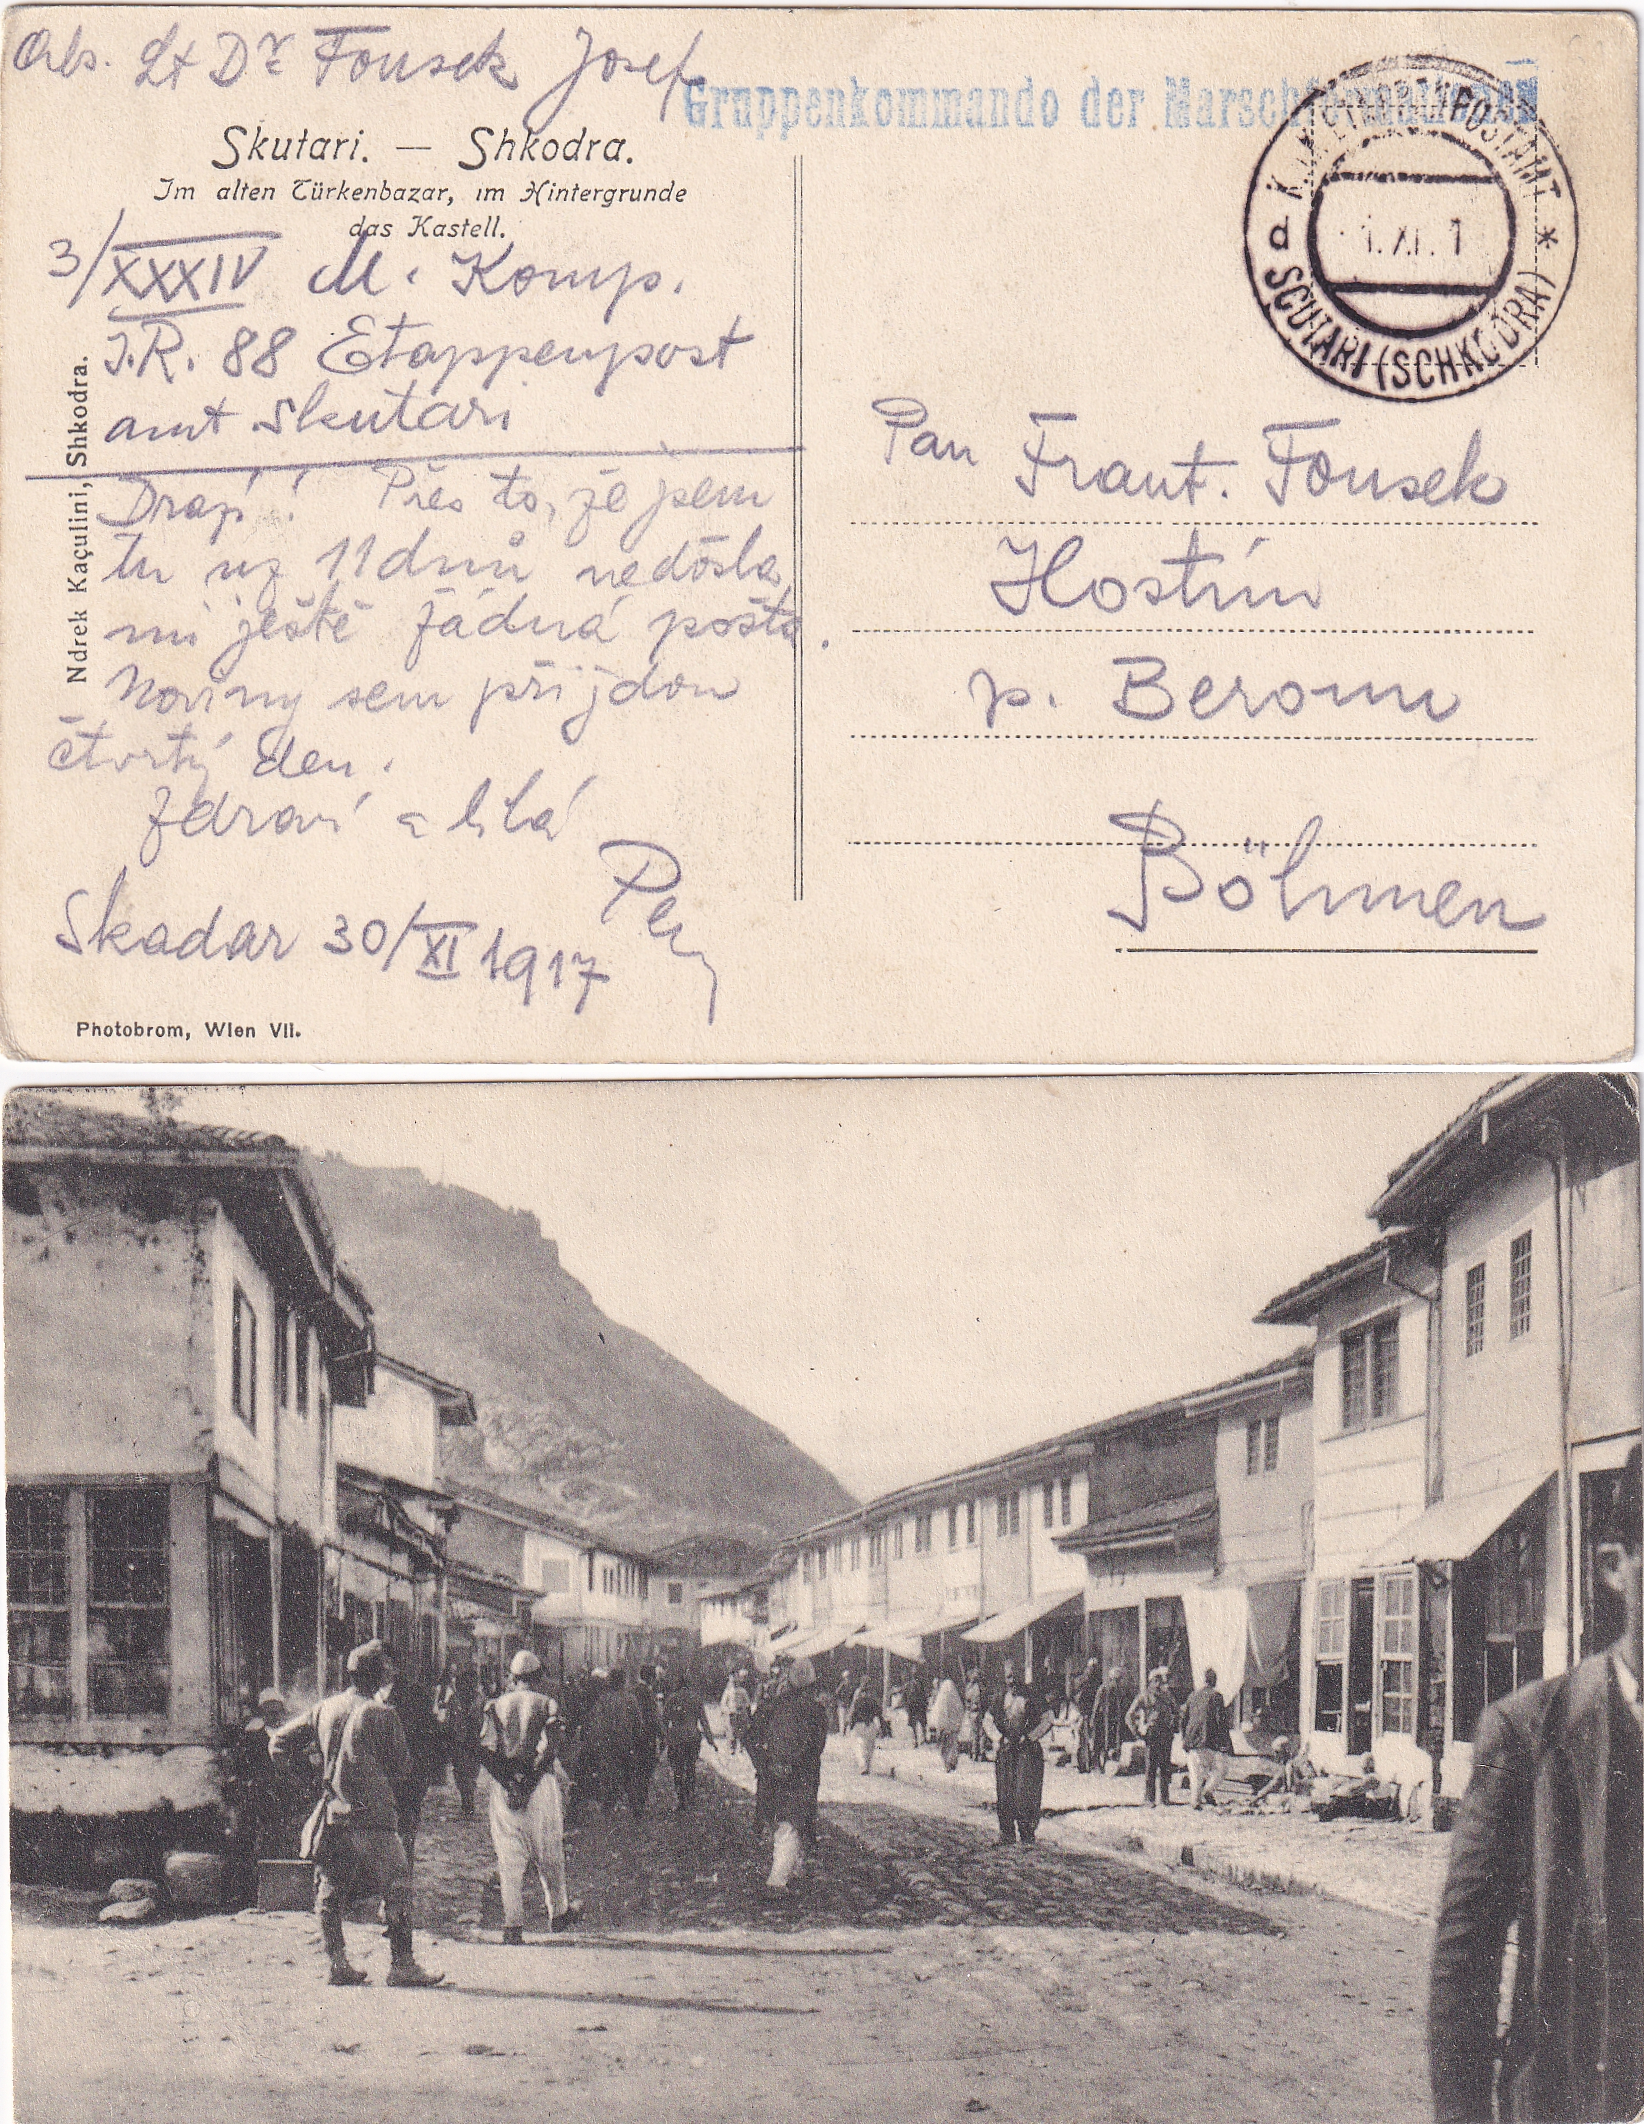 Abs. Lt Dr Fousek Josef
Gruppenkommando der Marschformationen
Skutari. — Shkodra.
Im alten Türkenbazar, im Hintergrunde
das Kastell.
3/XXXIV M. Komp.
I.R. 88 Etappenpost
amt Skutari
Drazí! Přes to, že jsem
tu už 11 dnů nedošla
mi ještě žádná pošta.
Noviny sem přijdou
čtvrtý den.
Zdraví a líbá
Skadar 30/XI 1917
Ndrek Kaçulini, Shkodra.
Photobrom, Wien VII.
K.u.K. ETAPPENPOSTAMT
d
1. XI. 1
*
SCUTARI (SCHKODRA)
Pan Frant. Fousek
Hostím
p. Beroun
Böhmen